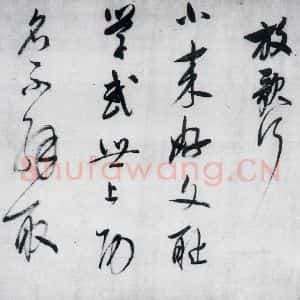 放歌行
小来好文耻
学武世上功
名不解取
Shufawang.CN